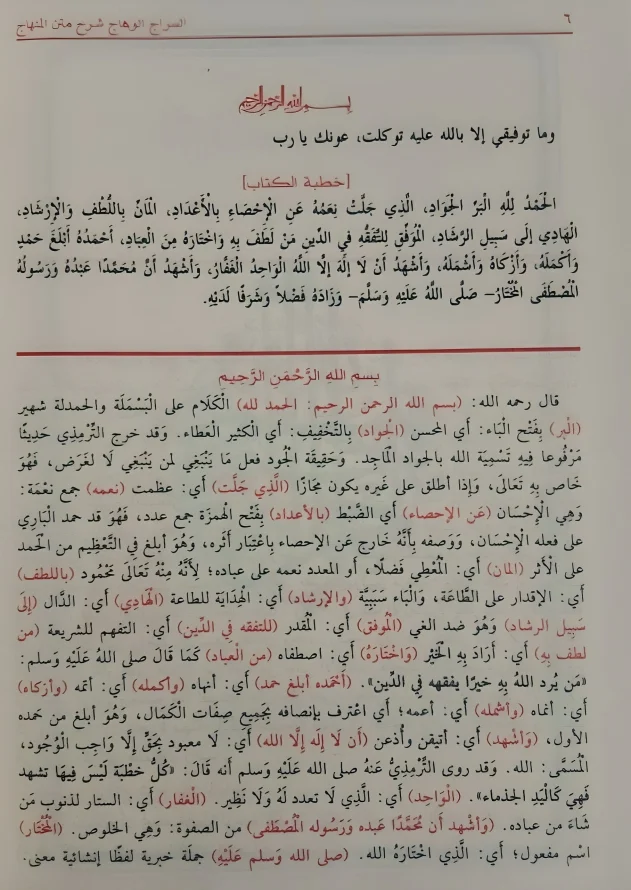 السراج الوهاج شرح متن المنهاج ٦
بسم الله الرحمن الرحيم
وما توفيقي إلا بالله عليه توكلت، عونك يا رب
[خطبة الكتاب]
الْحَمْدُ لِلَّهِ الْبَرِّ الْجَوَادِ، الَّذِي جَلَّتْ نِعَمُهُ عَنِ الْإِحْصَاءِ بِالْأَعْدَادِ، الْمَانِّ بِاللُّطْفِ وَالْإِرْشَادِ،
الْهَادِي إِلَى سَبِيلِ الرَّشَادِ، الْمُوَفِّقِ لِلتَّفَقُّهِ فِي الدِّينِ مَنْ لَطَفَ بِهِ وَاخْتَارَهُ مِنَ الْعِبَادِ، أَحْمَدُهُ أَبْلَغَ حَمْدٍ
وَأَكْمَلَهُ، وَأَزْكَاهُ وَأَشْمَلَهُ، وَأَشْهَدُ أَنْ لَا إِلَهَ إِلَّا اللَّهُ الْوَاحِدُ الْغَفَّارُ، وَأَشْهَدُ أَنَّ مُحَمَّدًا عَبْدُهُ وَرَسُولُهُ
الْمُصْطَفَى الْمُخْتَارُ– صَلَّى اللَّهُ عَلَيْهِ وَسَلَّمَ– وَزَادَهُ فَضْلًا وَشَرَفًا لَدَيْهِ.
بِسمِ اللهِ الرَّحْمَنِ الرَّحِيمِ
قال رحمه الله: (بسم الله الرحمن الرحيم: الحمد لله) الْكَلَام على الْبَسْمَلَة والحمدلة شهير
(البر) بِفَتْح الْبَاء: أي المحسن (الجواد) بِالتَّخْفِيفِ: أي الكثير الْعَطاء. وَقد خرج التِّرْمِذِي حَدِيثًا
مَرْفُوعا فِيهِ تَسْمِيَة الله بالجواد الْمَاجِد. وَحَقِيقَة الْجُود فعل مَا يَنْبَغِي لمن يَنْبَغِي لَا لغَرَض، فَهُوَ
خَاص بِهِ تَعَالَى، وَإِذا أطلق على غَيره يكون مَجَازًا (الَّذِي جَلَّت) أي: عظمت (نعمه) جمع نعْمَة:
وَهِي الْإِحْسَان (عَن الإحصاء) أي الضَّبْط (بالأعداد) بِفَتْح الْهمزَة جمع عدد، فَهُوَ قد حمد الْبَارِي
على فعله الْإِحْسَان، وَوَصفه بِأَنَّهُ خَارج عَن الإحصاء بِاعْتِبَار أَثَره، وَهُوَ أبلغ فِي التَّعْظِيم من الْحَمد
على الْأَثر (المان) أي: الْمُعْطِي فضلًا، أو المعدد نعمه على عباده؛ لِأَنَّهُ مِنْهُ تَعَالَى مَحْمُود (باللطف)
أي: الإقدار على الطَّاعَة، وَالْبَاء سَبَبِيَّة (والإرشاد) أي: الْهِدَايَة للطاعة (الْهَادِي) أي: الدَّال (إِلَى
سَبِيل الرشاد) وَهُوَ ضد الغي (الْمُوفق) أي: الْمُقدر (للتفقه فِي الدِّين) أي: التفهم للشريعة (من
لطف بِهِ) أي: أَرَادَ بِهِ الْخَيْر (وَاخْتَارَهُ) أي: اصطفاه (من الْعباد) كَمَا قَالَ صلى اللهُ عَلَيْهِ وسلم:
«مَن يُرد اللهُ بِهِ خيرًا يفقهه فِي الدِّين». (أَحْمَده أبلغ حمد) أي: أنهاه (وأكمله) أي: أتمه (وأزكاه)
أي: أنماه (وأشمله) أي: أعمه؛ أي اعْترف بإنصافه بِجَمِيعِ صِفَات الْكَمَال، وَهُوَ أبلغ من حَمده
الأول، (وَأشْهد) أي: أتيقن وأُذعن (أَن لَا إِلَه إِلَّا الله) أي: لَا معبود بِحَقٍّ إِلَّا وَاجِب الْوُجُود،
الْمُسَمَّى: الله. وَقد روى التِّرْمِذيُّ عَنهُ صلى الله عَلَيْهِ وسلم أنه قَالَ: «كُلُّ خطْبَة لَيْسَ فِيهَا تشهد
فَهِيَ كَالْيَدِ الجذماء». (الْوَاحِد) أي: الَّذِي لَا تعدد لَهُ وَلَا نَظِير. (الْغفار) أي: الستار لذنوب مَن
شَاءَ من عباده. (وَأشْهد أَن مُحَمَّدًا عَبده وَرَسُوله الْمُصْطَفى) من الصفوة: وَهِي الخلوص. (الْمُخْتَار)
اسْم مفعول؛ أي: الَّذِي اخْتَارَهُ الله. (صلى الله وَسلم عَلَيْهِ) جملَة خبرية لفظًا إنشائية معنى.